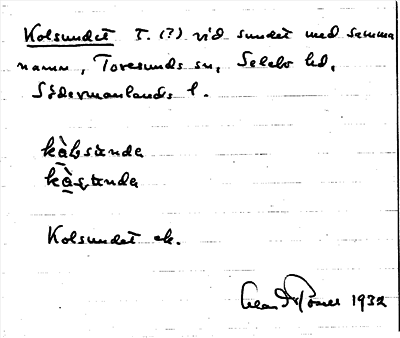 Kolsundet T. (?) vid sundet med samma
namn, Toresunds sn, Selebo hd,
Södermanlands l.
kàlsunde
kàsunde
Kolsundet ek.
1932